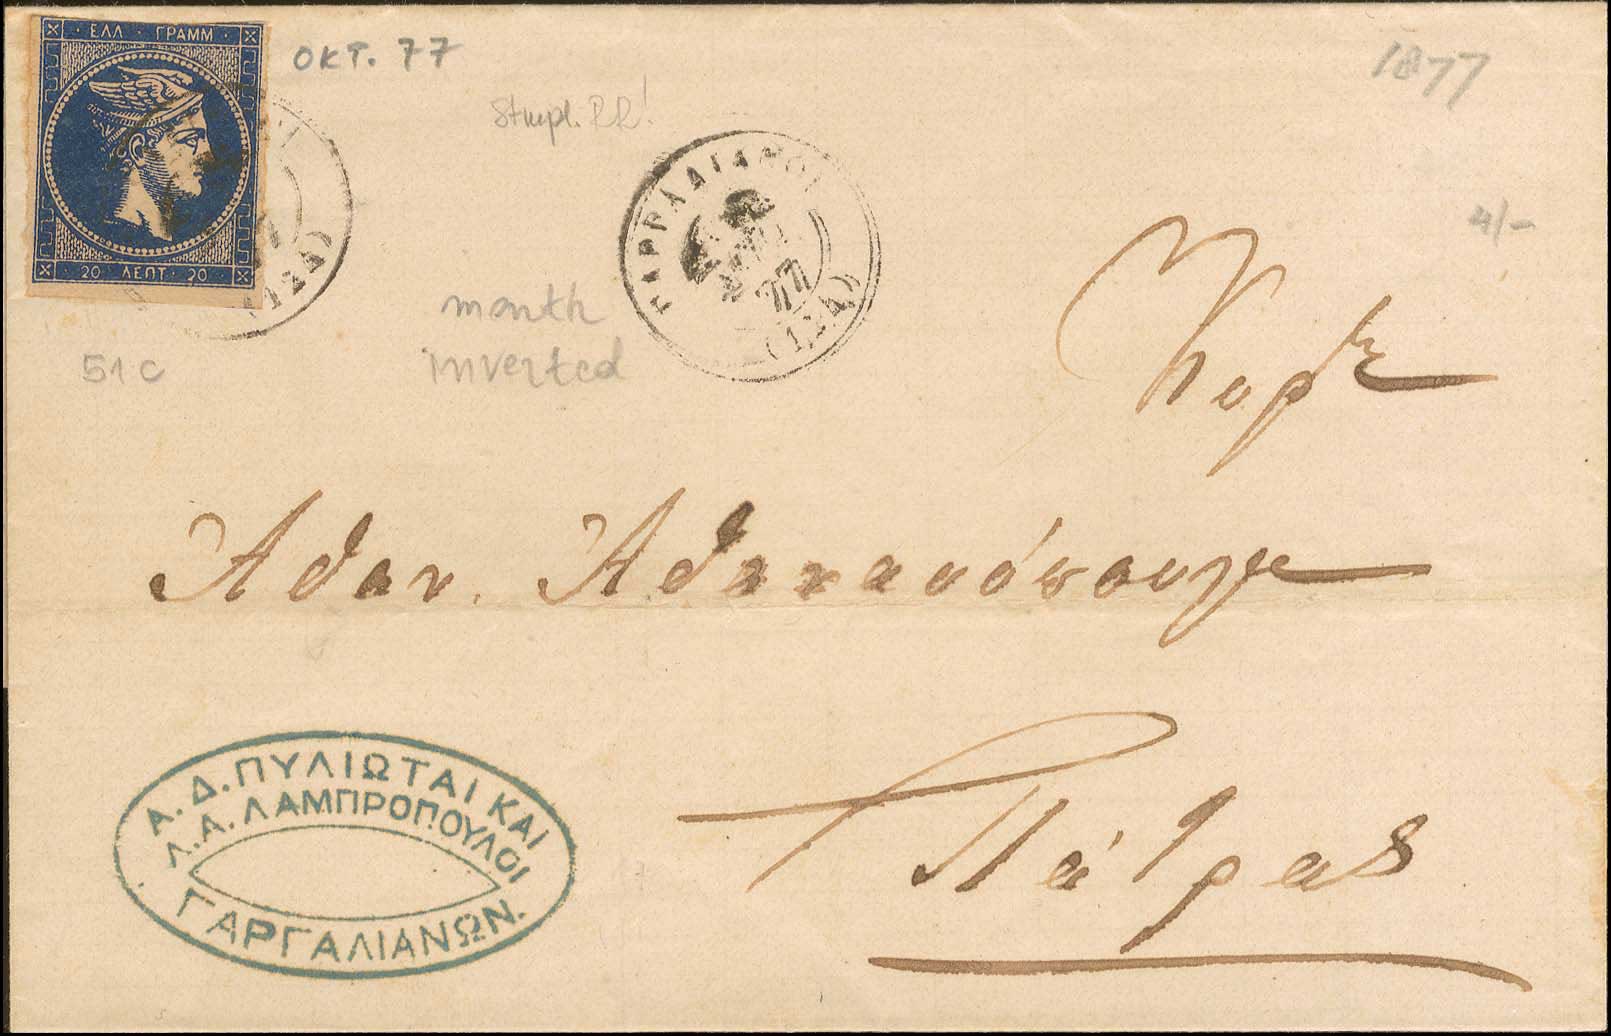 ΕΛΛ · ΓΡΑΜΜ
20 ΛΕΠΤ · 20
ΟΚΤ. 77
1877
Stmpl. RR!
ΓΑΡΓΑΛΙΑΝΟΙ
77
(124)
(124)
4/-
month
inverted
51c
Κυρον
Αθαν. Αθανασόπουλον
Πάτρας
Α. Δ. ΠΥΛΙΩΤΑΙ ΚΑΙ
Λ. Α. ΛΑΜΠΡΟΠΟΥΛΟΙ
ΓΑΡΓΑΛΙΑΝΩΝ.